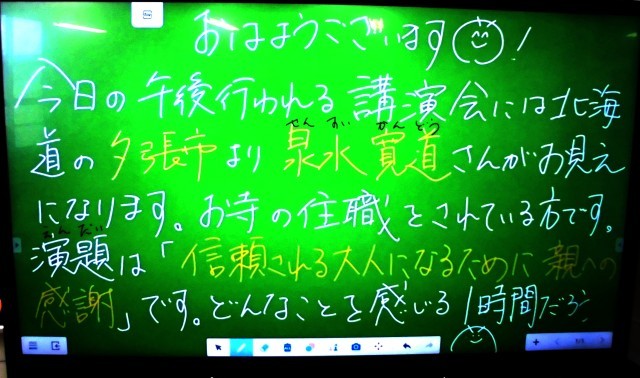 おはようございます!
今日の午後行われる講演会には北海
せん すい かんどう
道の夕張市より泉水寛道さんがお見え
になります。お寺の住職をされている方です。
えんだい
演題は「信頼される大人になるために 親への
感謝」です。どんなことを感じる1時間だろう